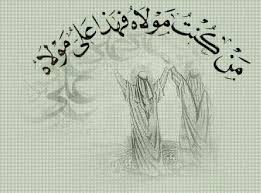 مَن كُنتُ مَولاهُ فَهذا عَلىٌّ مَولاهُ